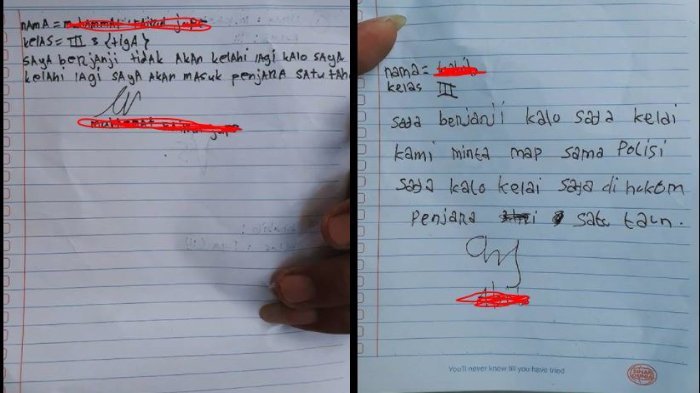 nAmA =
KelAS = III 3 {tigA}
SAYA berJANJi tidAK AKAN KelAhi lAgi KAlo SAYA
KelAhi lAgi SAYA AKAN mASuK PeNJARA SAtu tAhu
nama =
Kelas III
sada berjanji kalo sada kelai
kami minta map sama Polisi
sada kalo kelai saja di hokom
Penjara satu taun.
You'll never know till you have tried